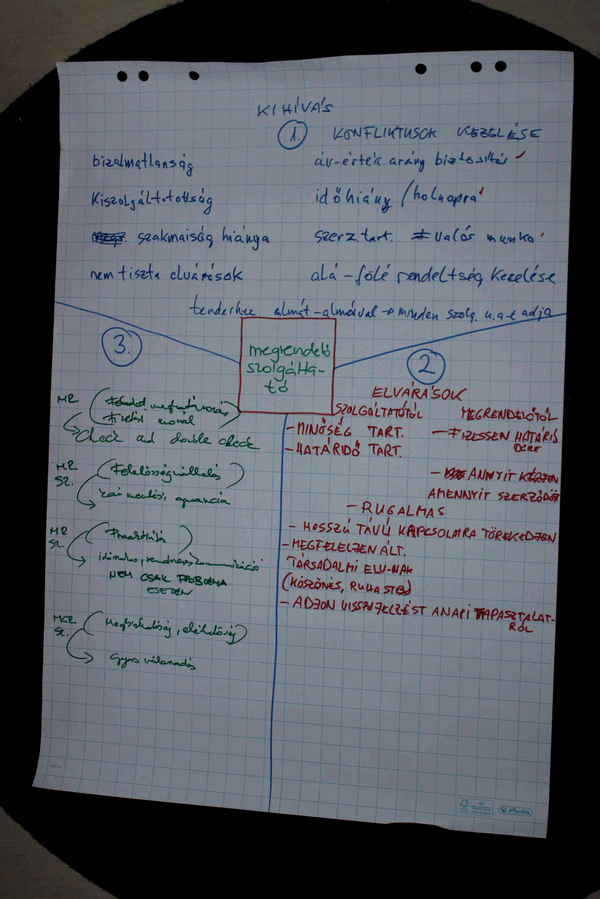 KIHÍVÁS
1. KONFLIKTUSOK KEZELÉSE
bizalmatlanság
Kiszolgáltatottság
szakmaiság hiánya
nem tiszta elvárások
ár-érték arány biztosítás
időhiány / holnapra
szerz. tart. ≠ valós munka
alá-fölé rendeltség kezelése
tenderhez almát-almával → minden szolg. u.a-t adja
megrendelő
szolgálta-
tó
2.
ELVÁRÁSOK
SZOLGÁLTATÓTÓL
- MINŐSÉG TART.
- HATÁRIDŐ TART.
MEGRENDELŐTŐL
- FIZESSEN HATÁRIDŐRE
- ANNYIT KÉRJEN
AMENNYIT SZERZŐDÖTT
- RUGALMAS
- HOSSZÚ TÁVÚ KAPCSOLATRA TÖREKEDJEN
- MEGFELELJEN ÁLT.
TÁRSADALMI ELV.-NAK
(KÖSZÖNÉS, RUHA STB)
- ADJON VISSZAJELZÉST A NAPI TAPASZTALAT-
RÓL
3.
MR
Fizetési morál
→ Check and double check
MR
SZ.
Felelősségvállalás
MR
SZ.
Proaktivitás
NEM CSAK PROBLÉMA
ESETÉN
MGR
SZ.
Gyors válaszadás